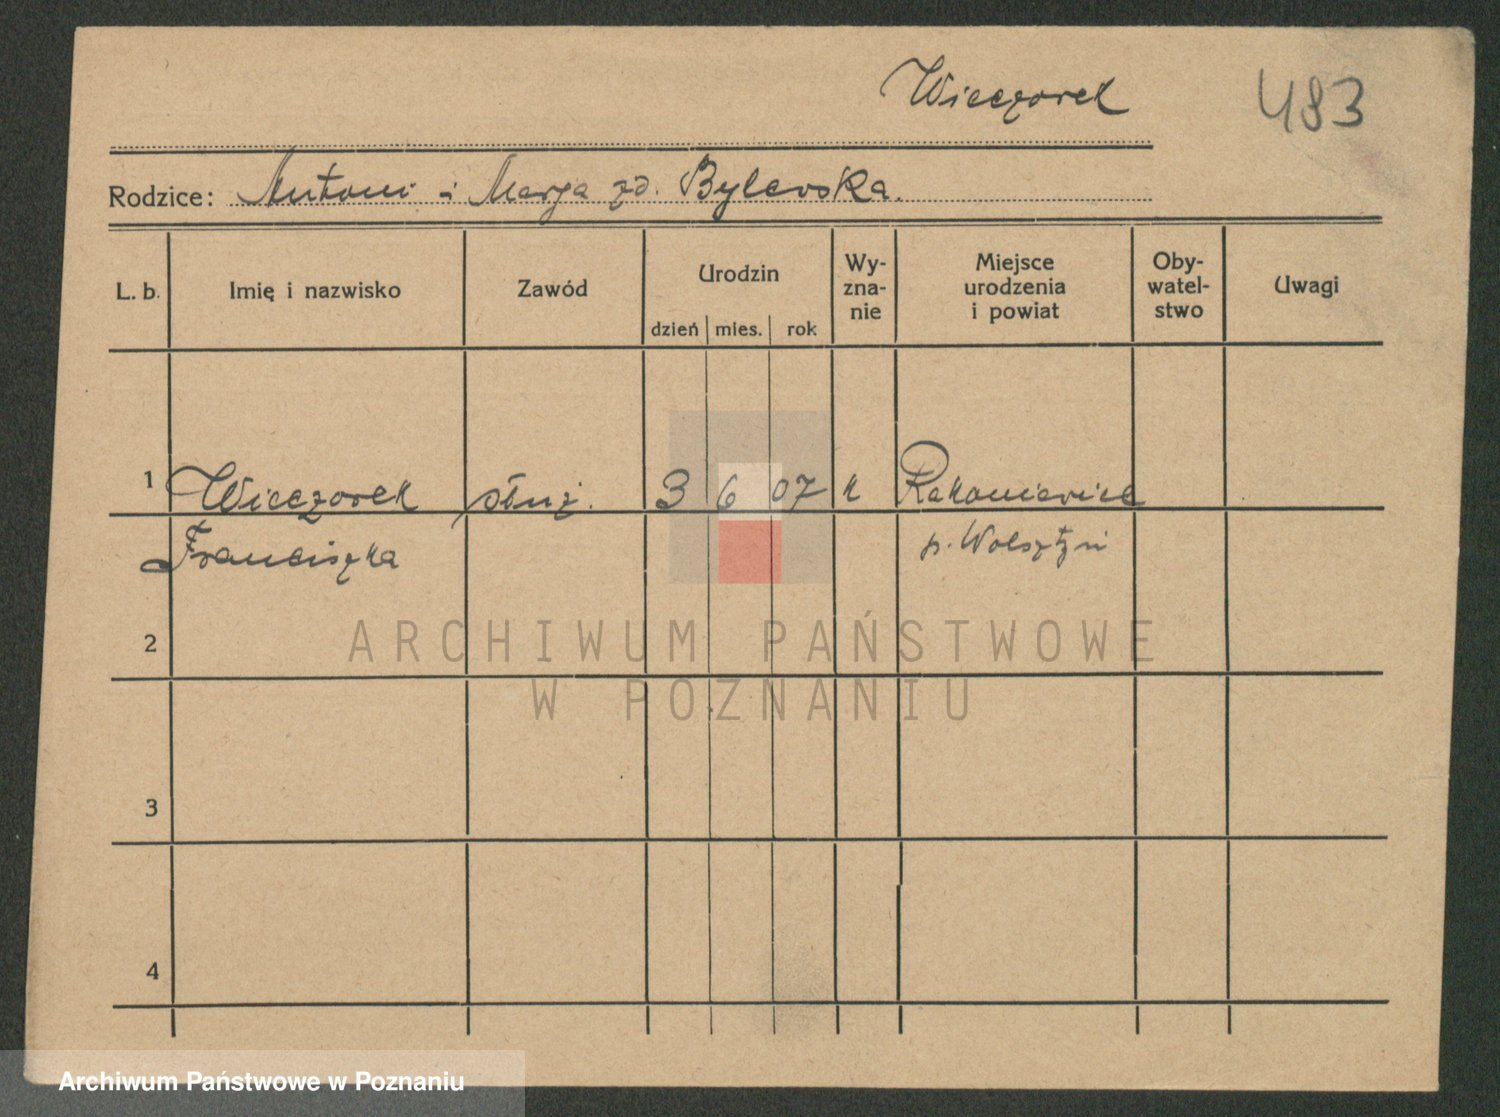 Wieczorek
483
Rodzice: Antoni i Marja zd. Bylewska.
L. b. Imię i nazwisko Zawód Urodzin Wy- Miejsce Oby- Uwagi
zna- urodzenia watel-
dzień mies. rok nie i powiat stwo
1 Wieczorek służ. 3 6 07 k Rakoniewice
Franciszka p. Wolsztyn
2
3
4
ARCHIWUM PAŃSTWOWE
W POZNANIU
Archiwum Państwowe w Poznaniu